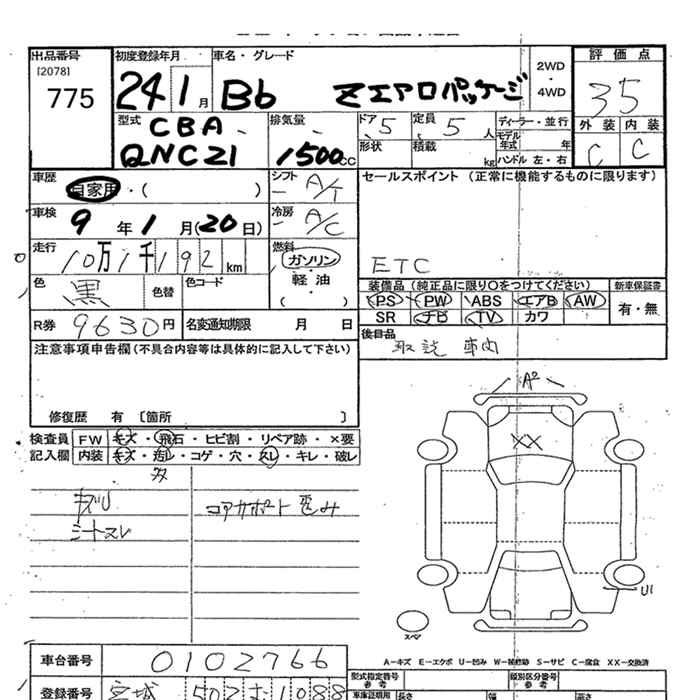 出品番号 初度登録年月 車名・グレード 評価点
[2078]
775 24 1月 Bb Zエアロパッケージ 2WD・4WD 35
型式 CBA- 排気量 ドア 5 定員 5人 ディーラー・並行 外装 内装
QNC21 1500cc 形状 積載 kg モデル年式 年 C C
ハンドル 左・右
車歴 自家用・( ) シフト A/T セールスポイント (正常に機能するものに限ります)
車検 9年1月(20日) 冷房 A/C
走行 10万1千192km 燃料 ガソリン ETC
色 黒 色替 色コード 軽油 装備品 (純正品に限り〇をつけてください) 新車保証書
( ) PS PW ABS エアB AW 有・無
R券 9630円 名変通知期限 月 日 SR ナビ TV カワ
注意事項申告欄(不具合内容等は具体的に記入して下さい) 後日品
取説 車内
修復歴 有 [箇所 ]
A2
検査員 FW キズ・飛石・ヒビ割・リペア跡・×要
記入欄 内装 キズ・汚レ・コゲ・穴・スレ・キレ・破レ
XX
コアサポート歪み
シートスレ
U1
スペア
A-キズ E-エクボ U-凹み W-補修跡 S-サビ C-腐食 XX-交換済
車台番号 0102766 型式指定番号 類別区分番号
参考 参考
登録番号 宮城 502 む 1088 車庫証明用 長さ 幅 高さ